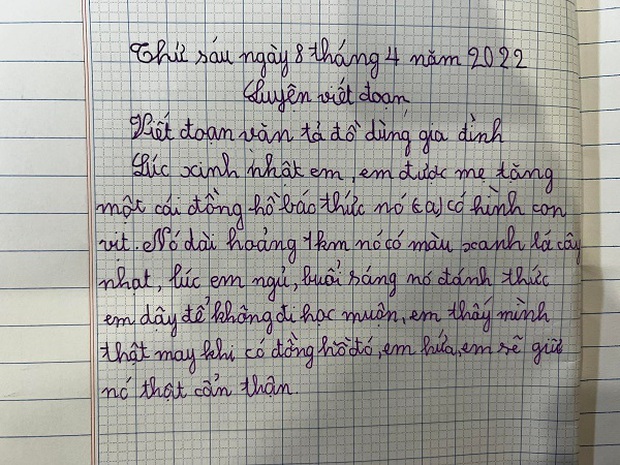 Thứ sáu ngày 8 tháng 4 năm 2022
Luyện viết đoạn
Viết đoạn văn tả đồ dùng gia đình
Lúc xinh nhật em, em được mẹ tặng
một cái đồng hồ báo thức nó (ca) có hình con
vịt. Nó dài hoảng 1km nó có màu xanh lá cây
nhạt, lúc em ngủ, buổi sáng nó đánh thức
em dậy để không đi học muôn, em thấy mình
thật may khi có đồng hồ đó, em hứa, em sẽ giữ
nó thật cẩn thận.